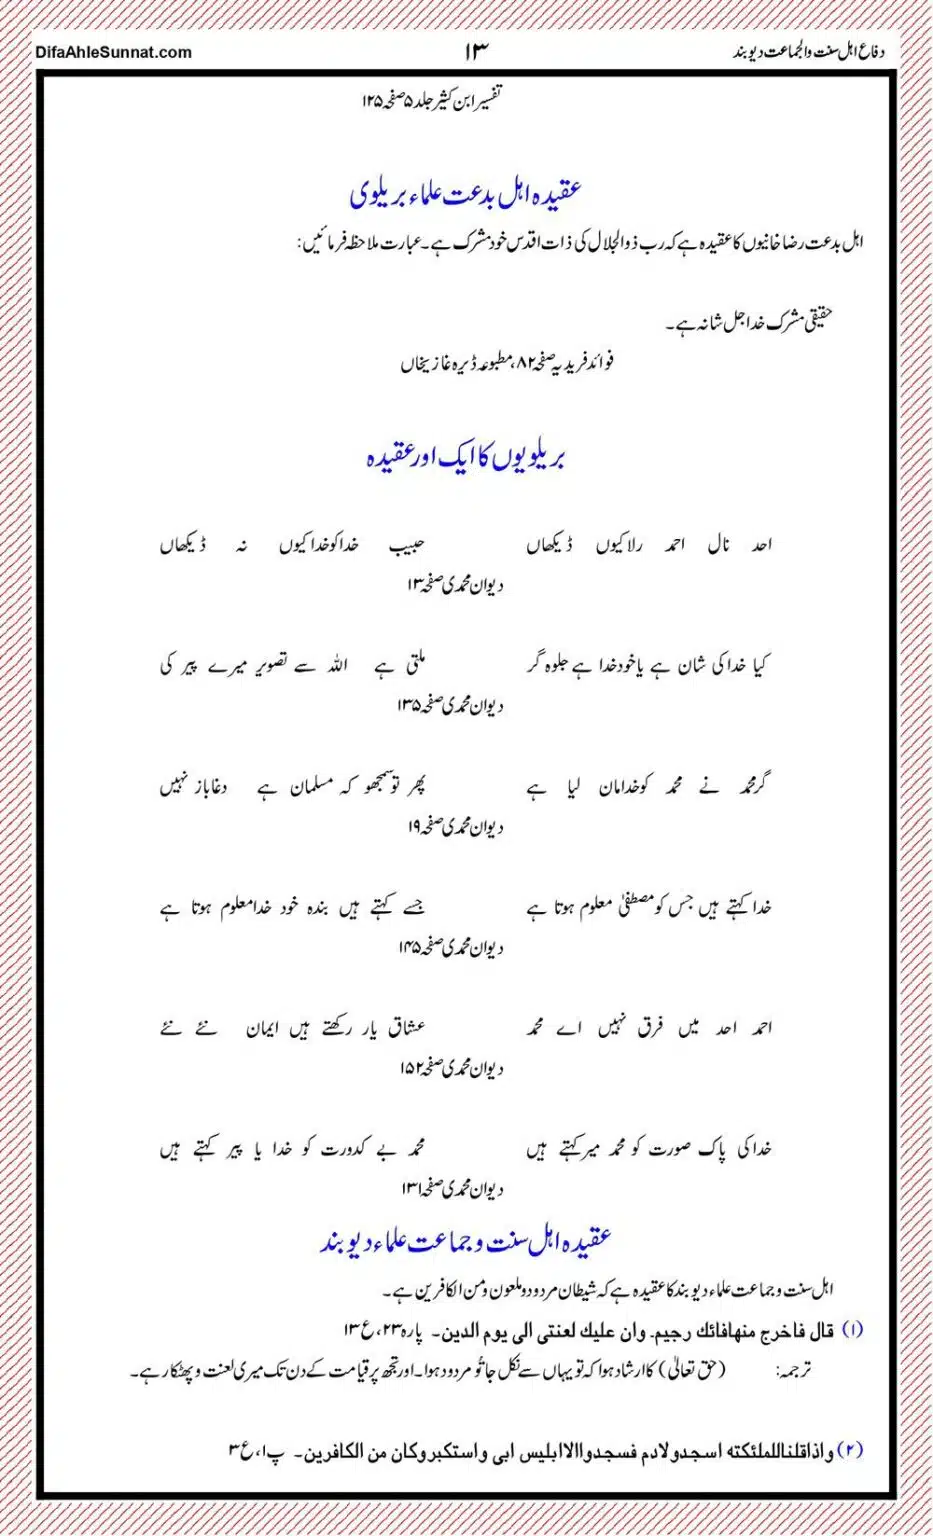 دفاع اہل سنت والجماعت دیوبند ۱۳ DifaAhleSunnat.com
تفسیر ابن کثیر جلد ۵ صفحہ ۱۲۵
عقیدہ اہل بدعت علماء بریلوی
اہل بدعت رضا خانیوں کا عقیدہ ہے کہ رب ذوالجلال کی ذات اقدس خود مشرک ہے۔ عبارت ملاحظہ فرمائیں:
حقیقی مشرک خدا جل شانہ ہے۔
فوائد فریدیہ صفحہ ۸۲، مطبوعہ ڈیرہ غازیخاں
بریلویوں کا ایک اور عقیدہ
احد نال احمد رلا کیوں ڈیکھاں حبیب خدا کو خدا کیوں نہ ڈیکھاں
دیوان محمدی صفحہ ۱۳
کیا خدا کی شان ہے یا خود خدا ہے جلوہ گر ملتی ہے اللہ سے تصویر میرے پیر کی
دیوان محمدی صفحہ ۱۳۵
گر محمد نے محمد کو خدا مان لیا ہے پھر تو سمجھو کہ مسلمان ہے دغاباز نہیں
دیوان محمدی صفحہ ۱۹
خدا کہتے ہیں جس کو مصطفیٰ معلوم ہوتا ہے جسے کہتے ہیں بندہ خود خدا معلوم ہوتا ہے
دیوان محمدی صفحہ ۱۴۵
احمد احد میں فرق نہیں اے محمد عشاق یار رکھتے ہیں ایمان نئے نئے
دیوان محمدی صفحہ ۱۵۲
خدا کی پاک صورت کو محمد میر کہتے ہیں محمد بے کدورت کو خدا یا پیر کہتے ہیں
دیوان محمدی صفحہ ۱۳۱
عقیدہ اہل سنت و جماعت علماء دیوبند
اہل سنت و جماعت علماء دیوبند کا عقیدہ ہے کہ شیطان مردود و ملعون و من الکافرین ہے۔
(۱) قال فاخرج منها فانك رجيم۔ وان عليك لعنتی الی يوم الدين۔ پارہ ۲۳، ع ۱۳
ترجمہ: (حق تعالیٰ) کا ارشاد ہوا کہ تو یہاں سے نکل جا تُو مردود ہوا۔ اور تجھ پر قیامت کے دن تک میری لعنت و پھٹکار ہے۔
(۲) واذا قلنا للملئكته اسجدو لادم فسجدوا الا ابليس ابی واستكبر وكان من الكافرين۔ پ ۱، ع ۳